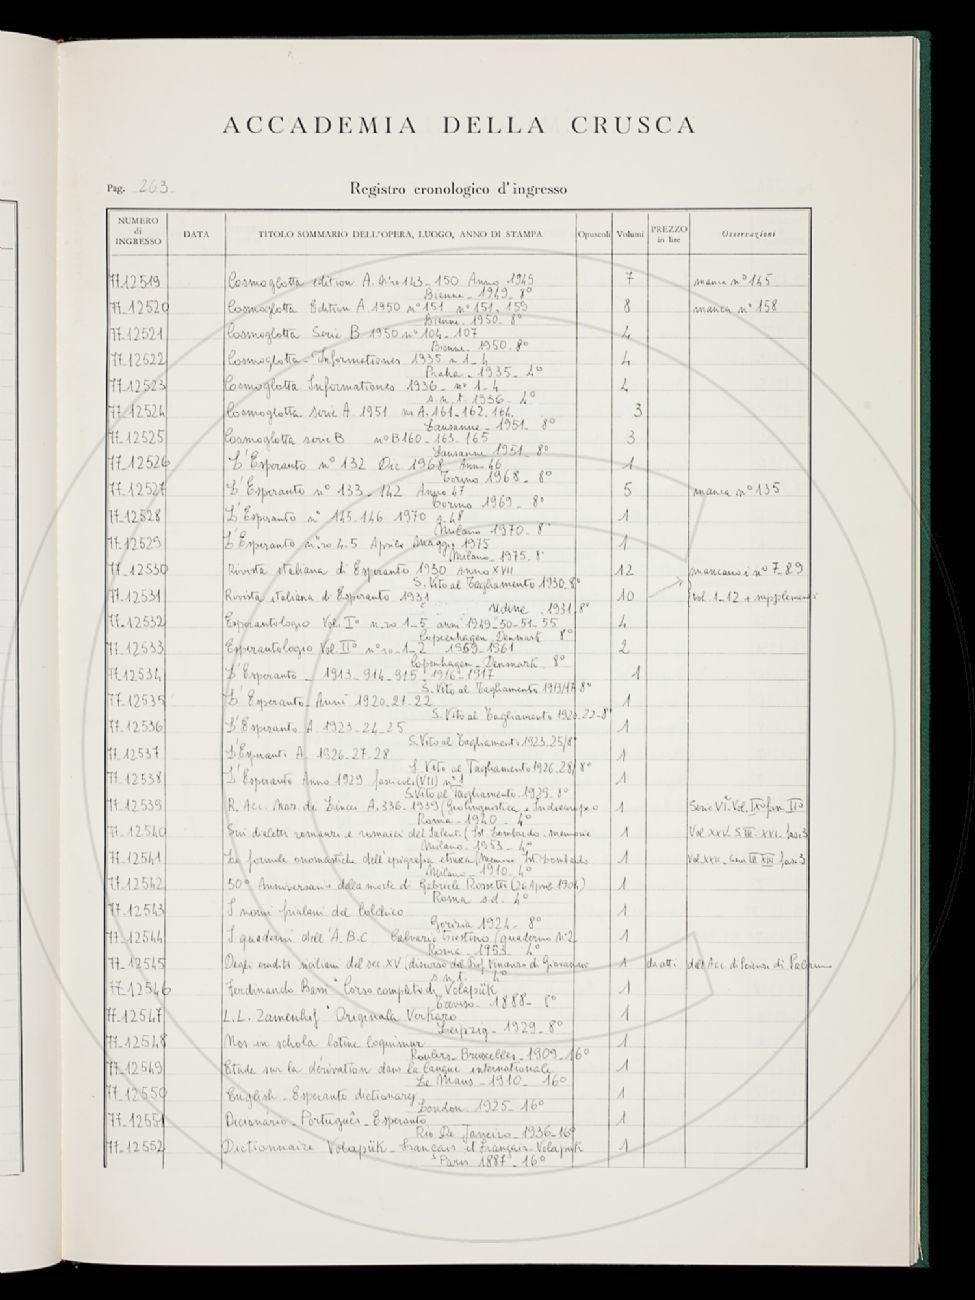 ACCADEMIA DELLA CRUSCA
Pag. 263
Registro cronologico d'ingresso
NUMERO di INGRESSO DATA TITOLO SOMMARIO DELL'OPERA, LUOGO, ANNO DI STAMPA Opuscoli Volumi PREZZO in lire Osservazioni
77-12519 Cosmoglotta edition A. 143-150 Anno 1949 7 manca n° 145
Bienne - 1949 - 8°
77-12520 Cosmoglotta Edition A 1950 n° 151 n° 151-159 8 manca n° 158
Bienne - 1950 - 8°
77-12521 Cosmoglotta Serie B 1950 n° 104-107 4
Bienne 1950 - 8°
77-12522 Cosmoglotta - Informationes 1935 n 1-4 4
Praha - 1935 - 4°
77-12523 Cosmoglotta Informationes 1936 - n° 1-4 4
s.n.t. 1936 - 4°
77-12524 Cosmoglotta serie A 1951 A. 161-162-164 3
Lausanne - 1951 - 8°
77-12525 Cosmoglotta serie B n° B 160-163-165 3
Lausanne 1951 - 8°
77-12526 L'Esperanto n° 132 Dic 1968 Anno 46 1
Torino 1968 - 8°
77-12527 L'Esperanto n° 133-142 Anno 47 5 manca n° 135
Torino 1969 - 8°
77-12528 L'Esperanto n° 145-146 1970 a. 48 1
Milano 1970 - 8°
77-12529 L'Esperanto 4-5 Aprile Maggio 1975 1
Milano - 1975 - 8°
77-12530 Rivista italiana di Esperanto 1930 Anno XVII 12 mancano i n° 7-8 9
S. Vito al Tagliamento 1930-8°
77-12531 Rivista italiana di Esperanto 1931 10 Vol. 1-12 + supplemento
Udine 1931 8°
77-12532 Esperantologio Vol. I° 1-5 anni 1949-50-51-55 4
Copenhagen Denmark 8°
77-12533 Esperantologio Vol II° 1-2 1959-1961 2
Copenhagen - Denmark 8°
77-12534 L'Esperanto - 1913-914-915-1916-1917 1
S. Vito al Tagliamento 1913/17 8°
77-12535 L'Esperanto Anni 1920-21-22 1
S. Vito al Tagliamento 1920-22-8°
77-12536 L'Esperanto A 1923-24-25 1
S. Vito al Tagliamento 1923-25/8°
77-12537 L'Esperanto A 1926-27-28 1
S. Vito al Tagliamento 1926-28/8°
77-12538 L'Esperanto Anno 1929 fascicolo (VII) n° 1 1
S. Vito al Tagliamento - 1929 - 8°
77-12539 R. Acc. Naz. dei Lincei A. 336-1939 (Geolinguistica e Indoeuropeo 1 Serie VI° Vol. IX° fasc. II°
Roma - 1940 - 4°
77-12540 Sui dialetti romanzi e romaici del Salento (Ist Lombardo - memorie 1 Vol XXV - S. III - XVI - fasc 3
Milano - 1953 - 4°
77-12541 Le formule onomastiche dell'epigrafia etrusca (Memorie Ist Lombardo 1 Vol XXII - serie III XIII fasc 3
Milano - 1910 - 4°
77-12542 50° Anniversario della morte di Gabriele Rossetti (26 Aprile 1904) 1
Roma s.d. 4°
77-12543 I nomi friulani del Colchico 1
Gorizia 1924 - 8°
77-12544 I quaderni dell'A.B.C Calvario Triestino (quaderno N° 2 1
Roma - 1953 - 4°
77-12545 Degli eruditi siciliani del sec XV (discorso del Prof. Vincenzo di Giovanni 1 da atti della Acc. di Scienze di Palermo
s.n.t. 4°
77-12546 Ferdinando Bassi "Corso completo di Volapük 1
Treviso - 1888 - 8°
77-12547 L.L. Zamenhof "Originala Verkaro 1
Leipzig - 1929 - 8°
77-12548 Nos in schola latine loquimur 1
Roulers - Bruxelles - 1909 - 16°
77-12549 Etude sur la dérivation dans la langue internationale 1
Le Mans - 1910 - 16°
77-12550 English - Esperanto dictionary 1
London - 1925 - 16°
77-12551 Dicionário - Português - Esperanto 1
Rio De Janeiro - 1936 - 16°
77-12552 Dictionnaire Volapük - Français et Français - Volapük 1
Paris 1887 - 16°